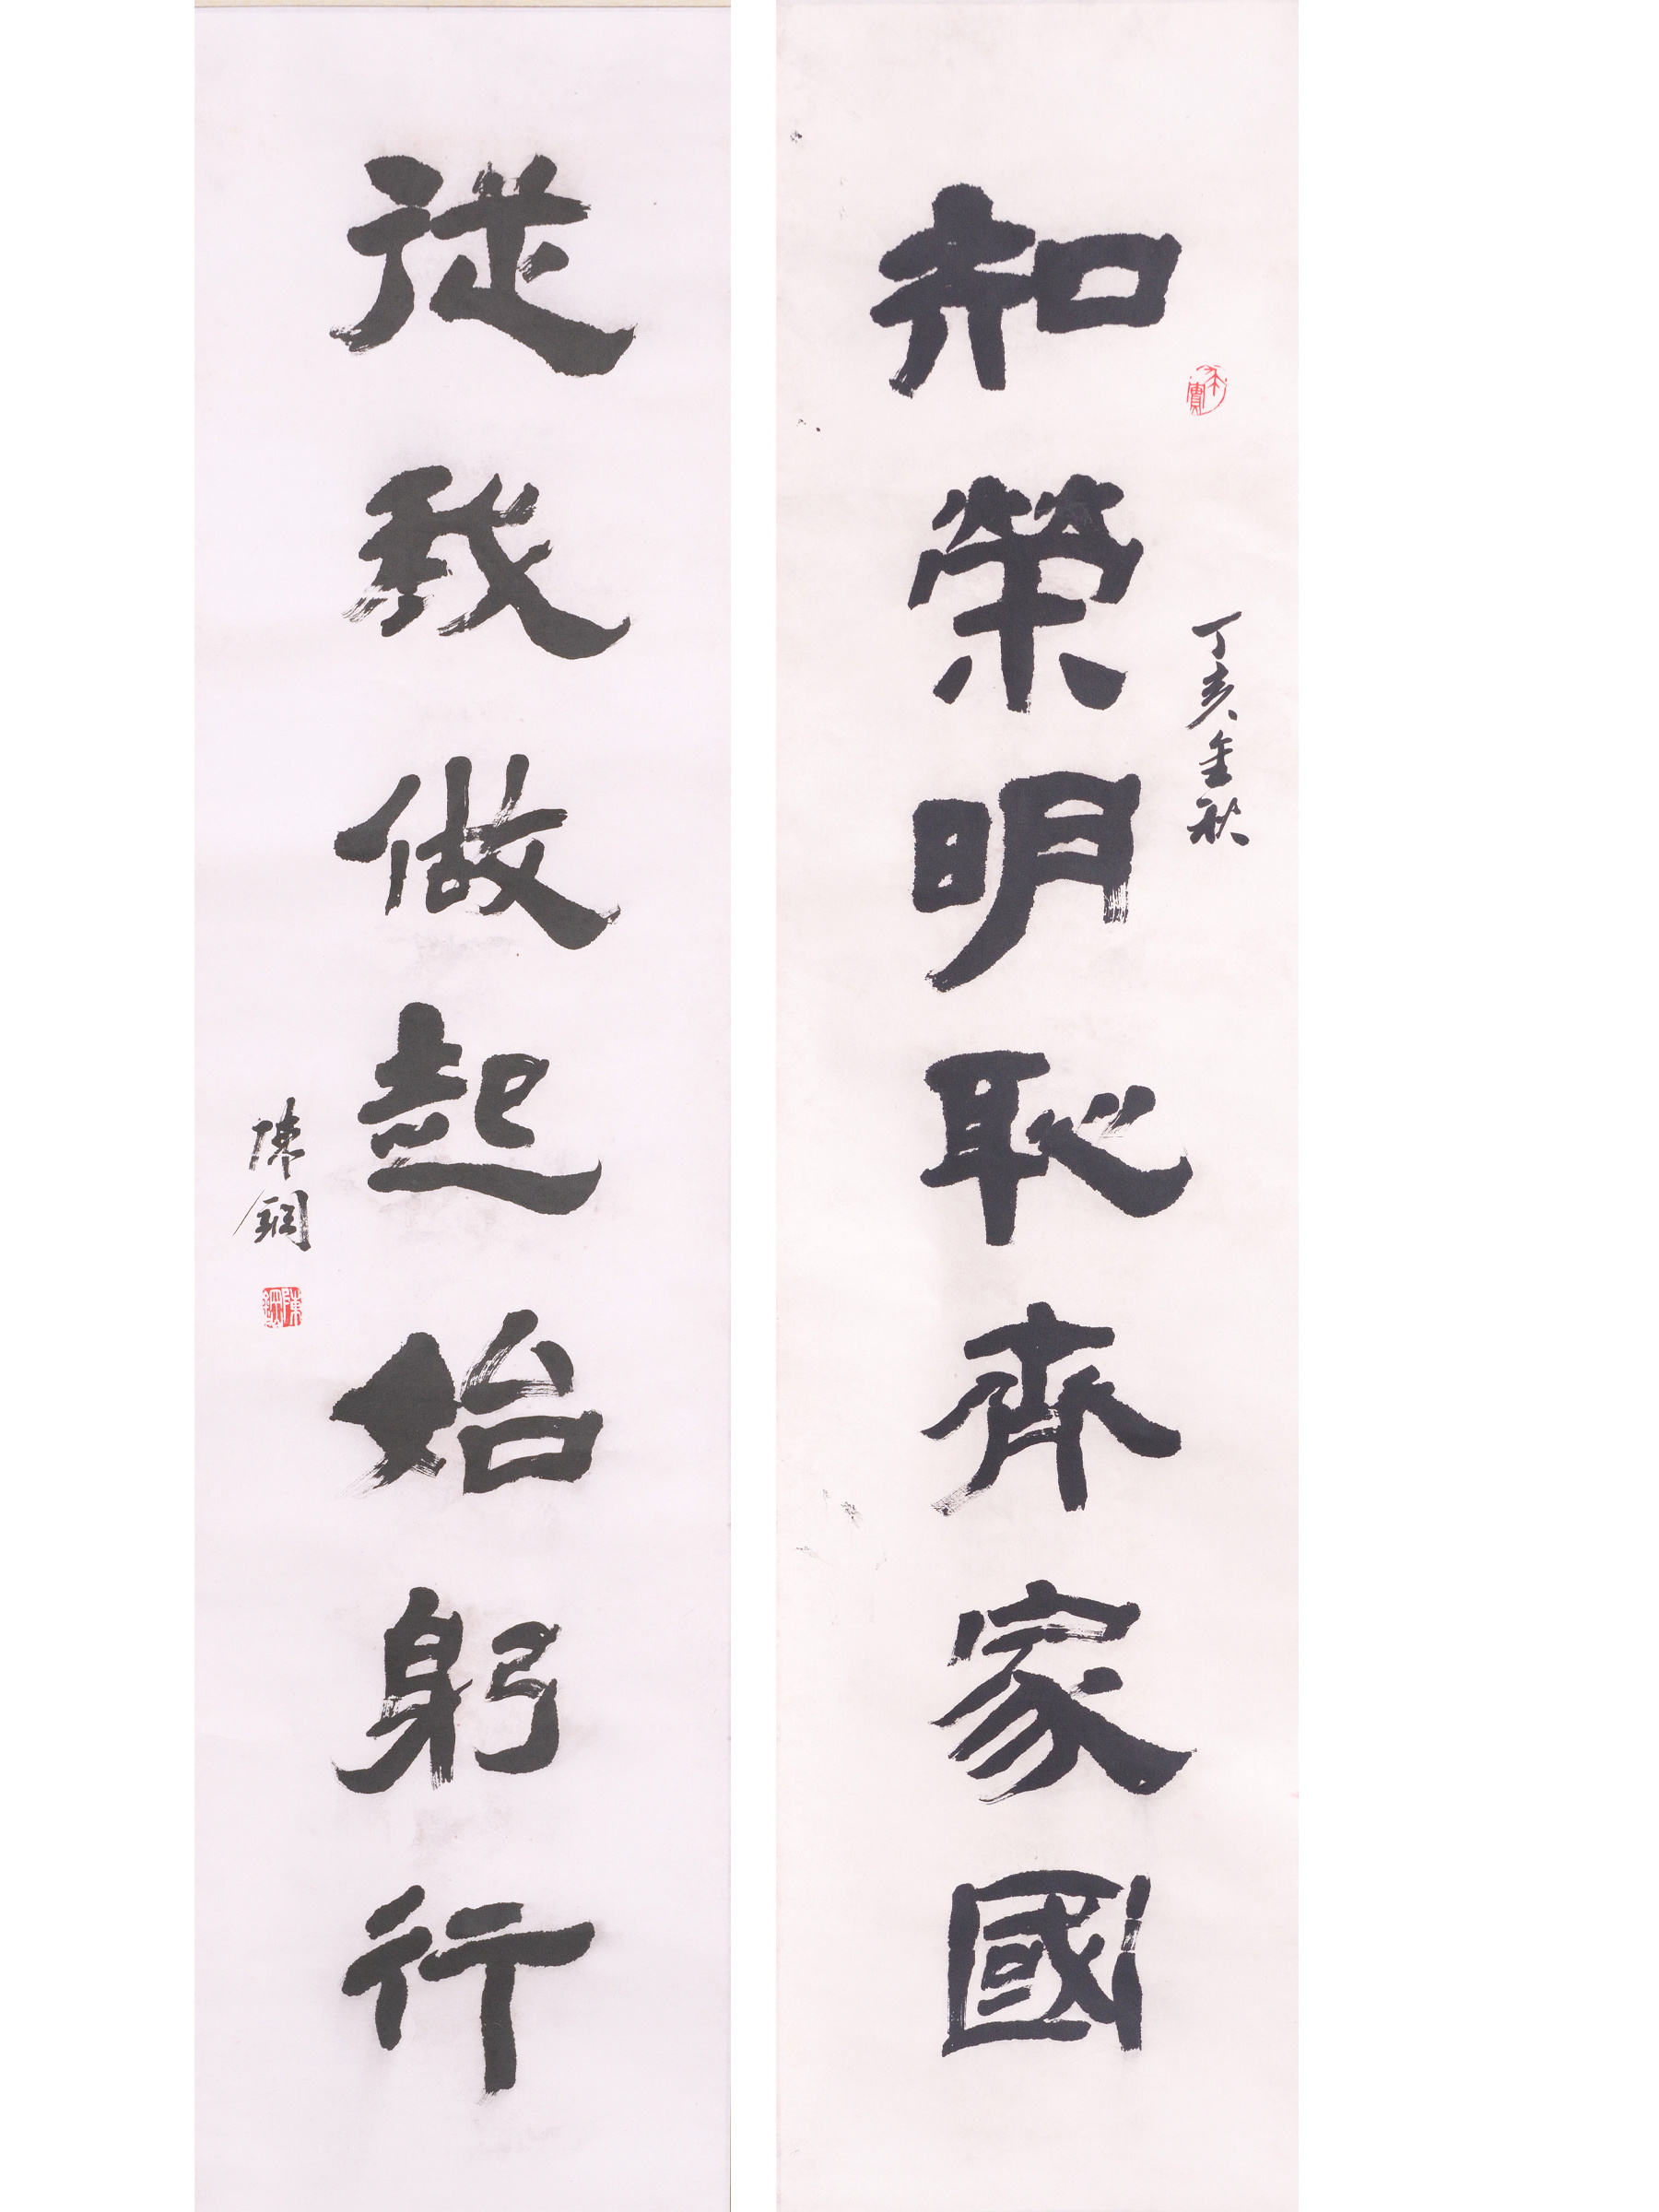 知榮明恥齊家國
丁亥金秋
從我做起始躬行
陳鋼